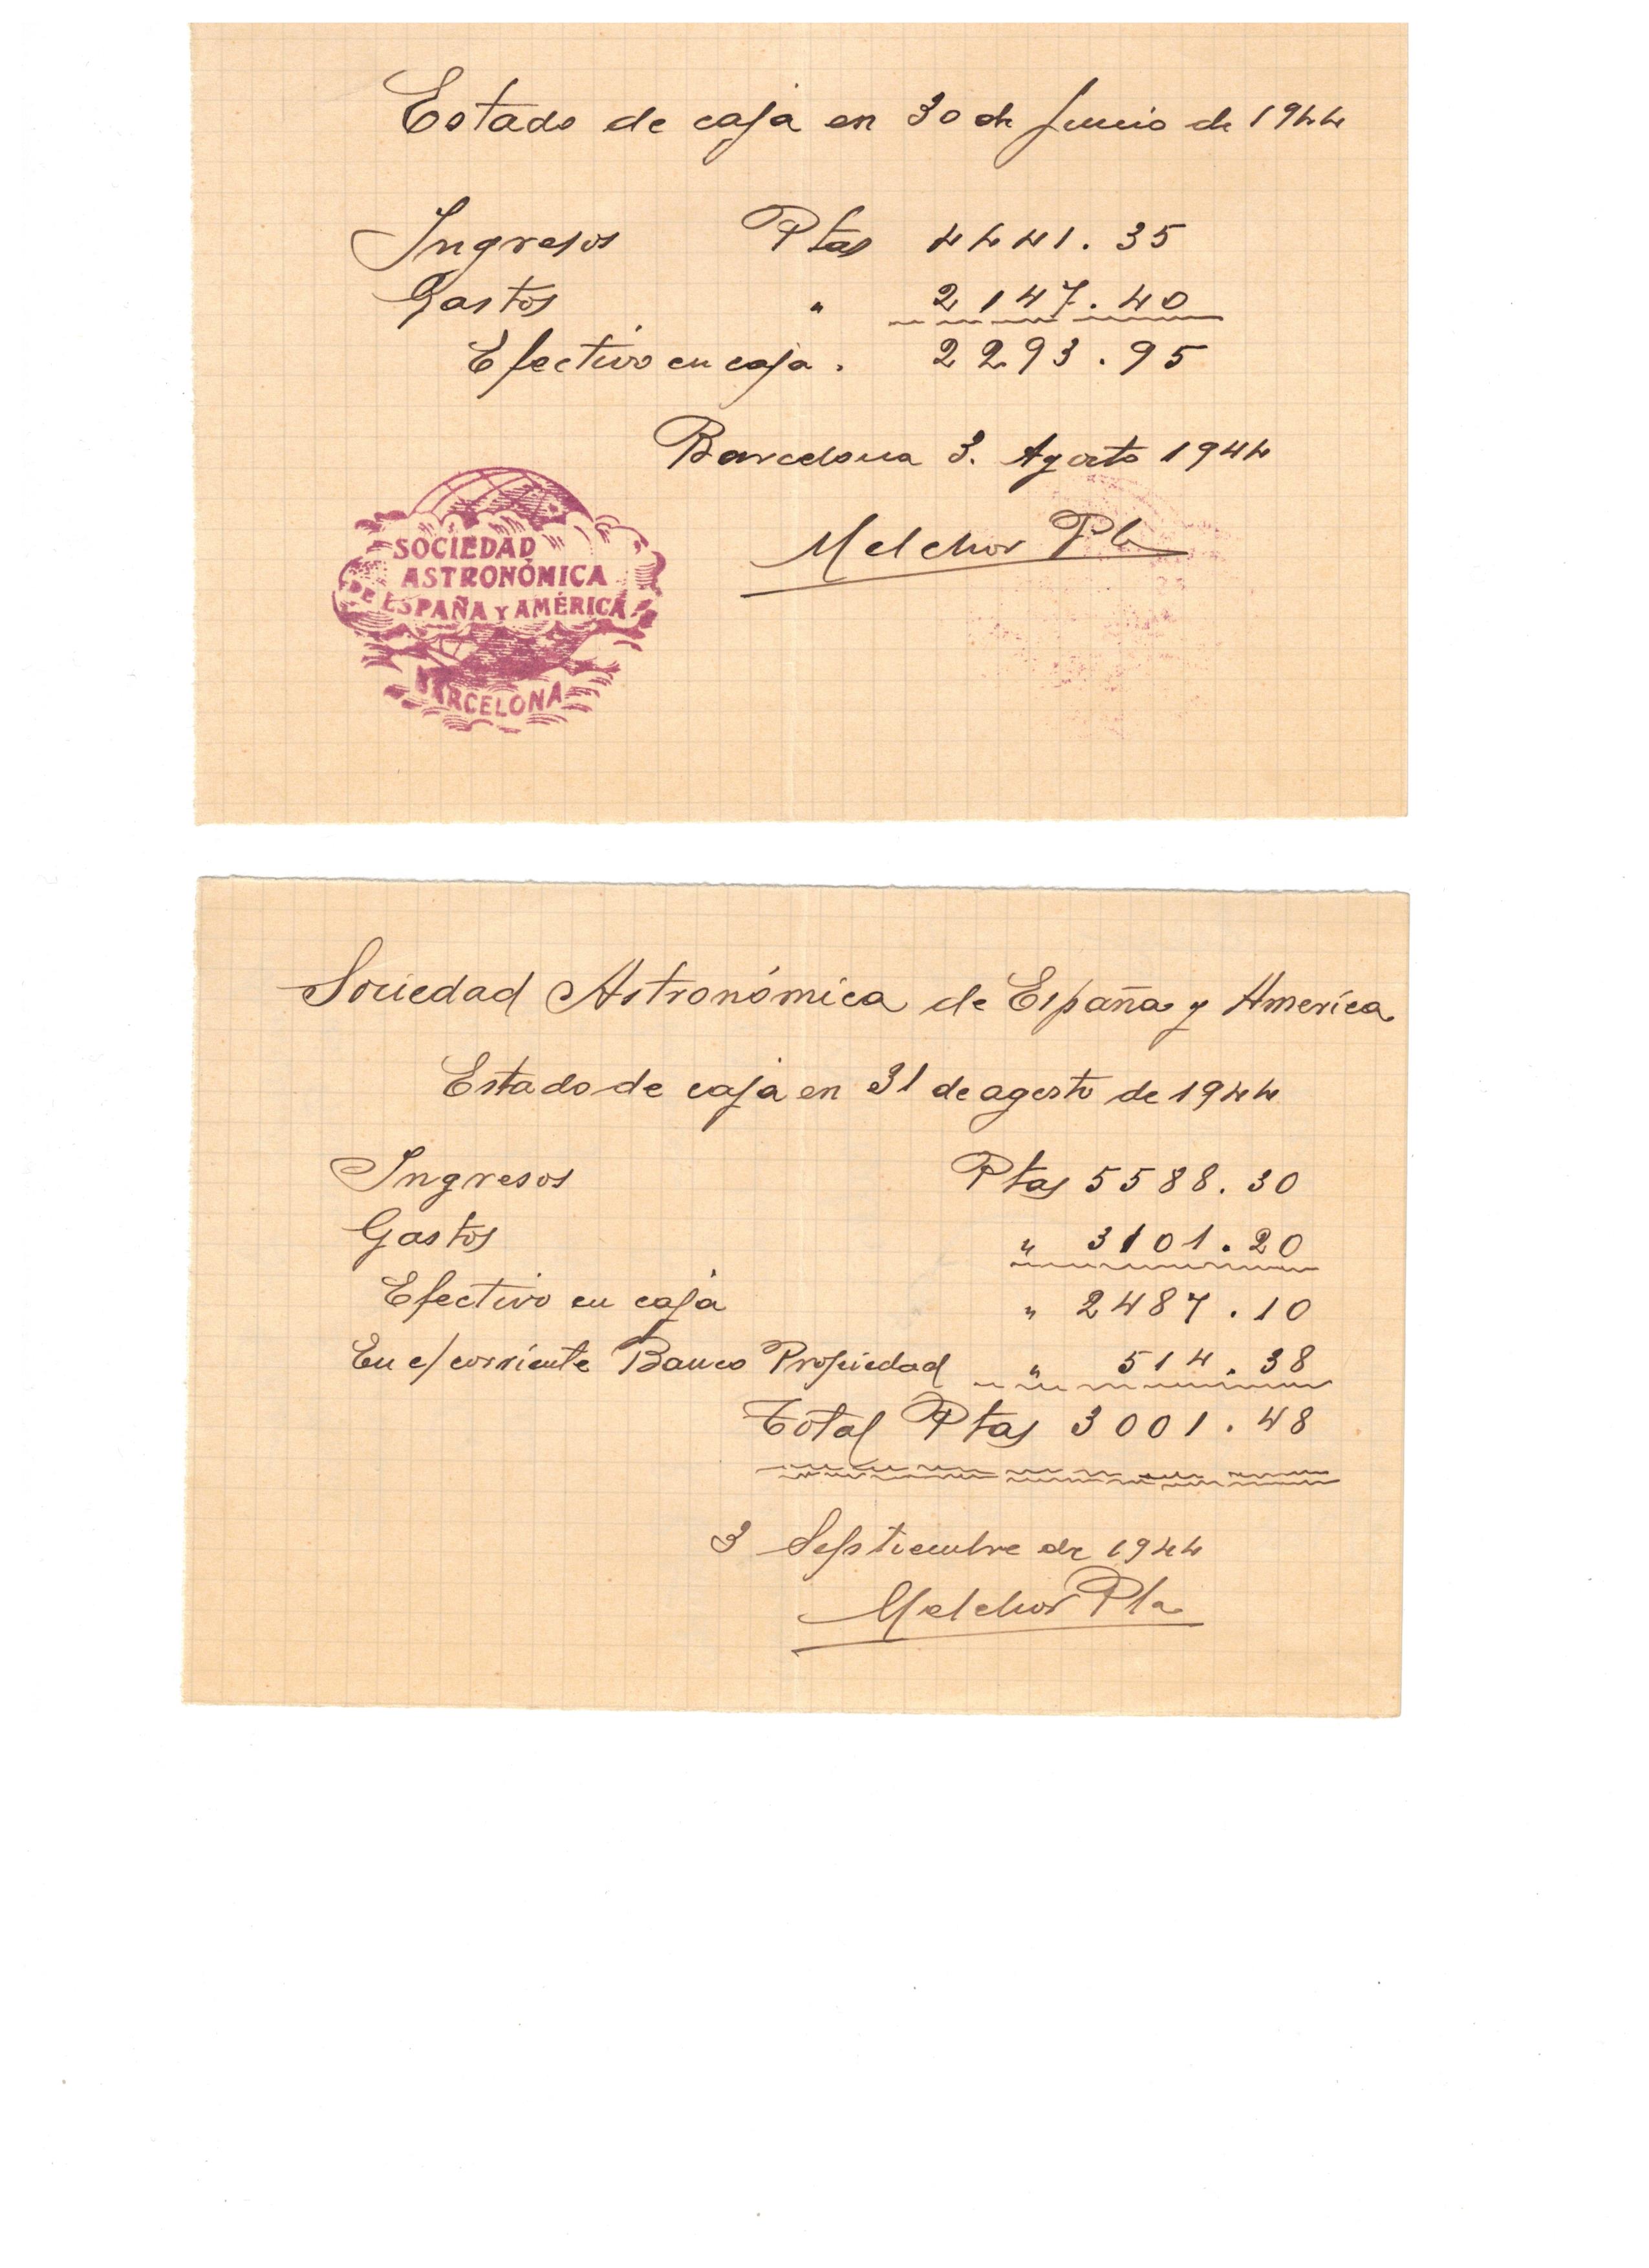 Estado de caja en 30 de Junio de 1944
Ingresos Ptas 4441.35
Gastos " 2147.40
Efectivo en caja. 2293.95
Barcelona 3. Agosto 1944
Melchor Pla
SOCIEDAD
ASTRONÓMICA
DE ESPAÑA Y AMÉRICA
BARCELONA
Sociedad Astronómica de España y America
Estado de caja en 31 de agosto de 1944
Ingresos Ptas 5588.30
Gastos " 3101.20
Efectivo en caja " 2487.10
En c/ corriente Banco Propiedad " 514.38
Total Ptas 3001.48
3 Septiembre de 1944
Melchor Pla